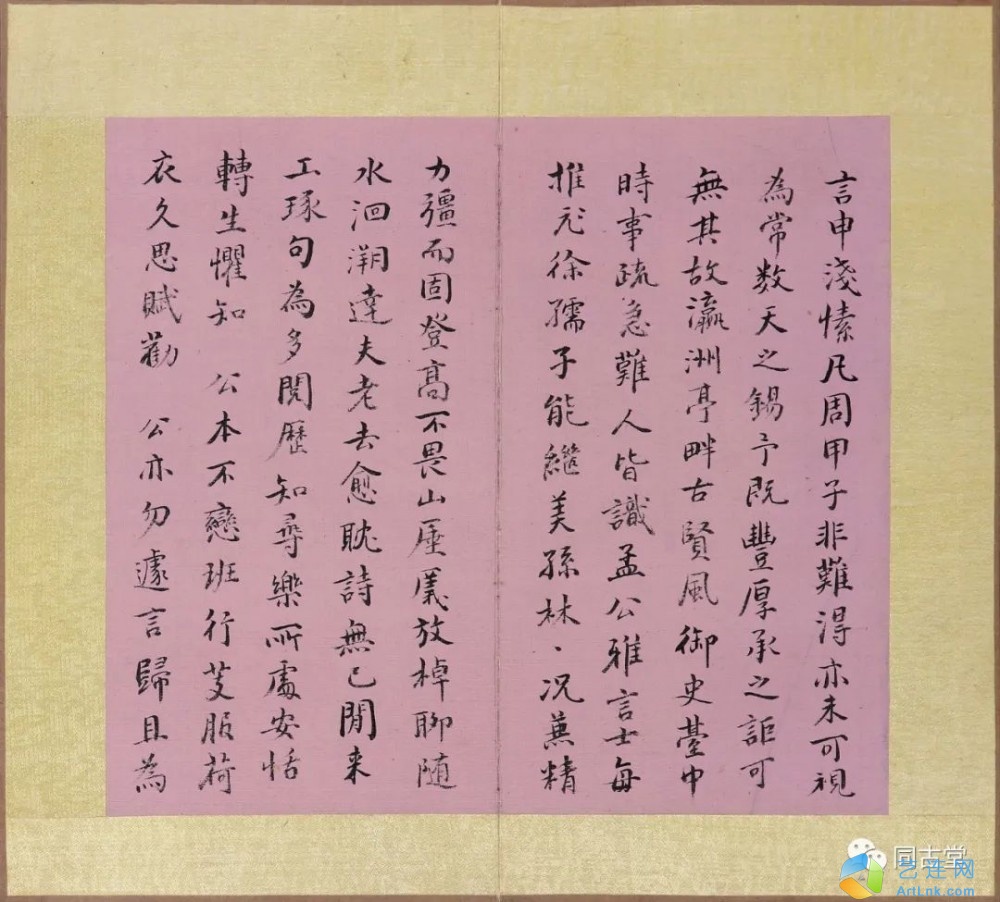 言申淺愫凡周甲子非難得亦未可視
為常数天之錫予既豐厚承之詎可
無其故瀛洲亭畔古賢風御史臺中
時事疏急難人皆識孟公雅言士每
推元徐孺子能繼美孫林、况蕪精
力彊而固登高不畏山厓㕒放棹聊随
水洄溯達夫老去愈耽詩無已閒来
工琢句為多閱歷知尋樂所處安恬
轉生懼知 公本不戀班行芰服荷
衣久思賦勸 公亦勿遽言歸且為
同古堂
艺连网
ArtLnk.com